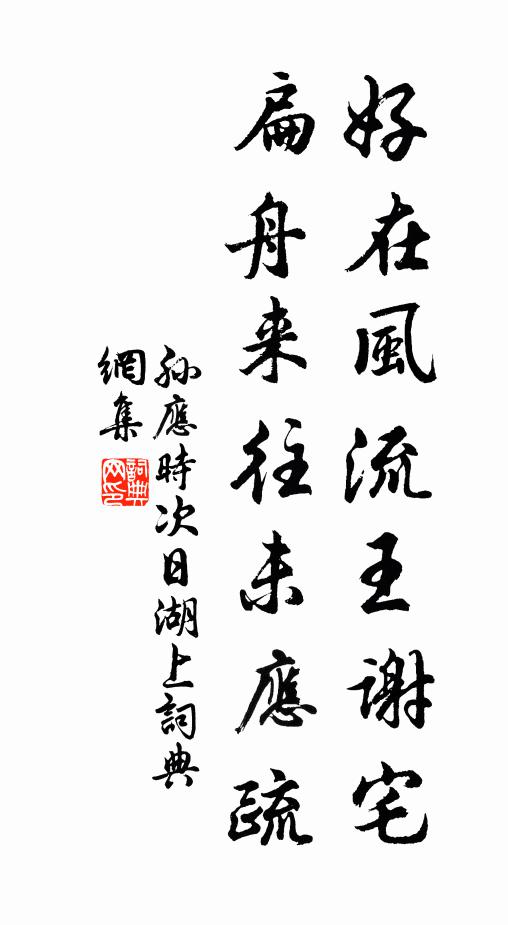 好在風流王謝宅
扁舟来往未應疏
孫應時次日湖上詞典
網集
詞典网印